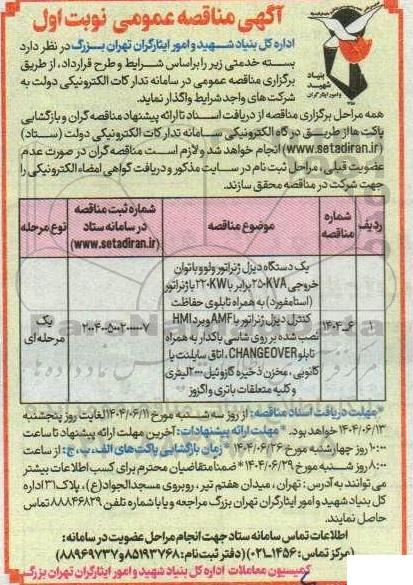 آگهی مناقصه عمومی نوبت اول
بنیاد
شهید
و امور ایثارگران
اداره کل بنیاد شهید و امور ایثارگران تهران بزرگ در نظر دارد
بسته خدمتی زیر را براساس شرایط و طرح قرارداد، از طریق
برگزاری مناقصه عمومی در سامانه تدارکات الکترونیکی دولت به
شرکت های واجد شرایط واگذار نماید.
همه مراحل برگزاری مناقصه از دریافت اسناد تا ارائه پیشنهاد مناقصه گران و بازگشایی
پاکت ها از طریق درگاه الکترونیکی سامانه تدارکات الکترونیکی دولت (ستاد)
(www.setadiran.ir) انجام خواهد شد و لازم است مناقصه گران در صورت عدم
عضویت قبلی، مراحل ثبت نام در سایت مذکور و دریافت گواهی امضاء الکترونیکی را
جهت شرکت در مناقصه محقق سازند.
ردیف
شماره مناقصه
موضوع مناقصه
شماره ثبت مناقصه در سامانه ستاد (www.setadiran.ir)
نوع مرحله
۱
۱۴۰۴-۶
یک دستگاه دیزل ژنراتور ولوو با توان
خروجی ۲۵۰KVA برابر با ۲۲۰KW با ژنراتور
(استامفورد) به همراه تابلوی حفاظت
کنترل دیزل ژنراتور با AMF و برد HMI
نصب شده بر روی شاسی باکدار به همراه
تابلو CHANGEOVER، اتاق سایلنت یا
کانوپی، مخزن ذخیره گازوئیل ۲۰۰۰ لیتری
و کلیه متعلقات باتری و اگزوز
۲۰۰۴۰۰۵۰۰۲۰۰۰۰۰۷
یک
مرحله ای
*مهلت دریافت اسناد مناقصه: از روز سه شنبه مورخ ۱۴۰۴/۰۶/۱۱ لغایت روز پنجشنبه
۱۴۰۴/۰۶/۱۳ خواهد بود. *مهلت ارائه پیشنهادات: آخرین مهلت ارائه پیشنهاد تا ساعت
۱۰:۰۰ روز چهارشنبه مورخ ۱۴۰۴/۰۶/۲۶ *زمان بازگشایی پاکت های الف، ب، ج: از ساعت
۸:۰۰ روز شنبه مورخ ۱۴۰۴/۰۶/۲۹ *ضمنا متقاضیان محترم برای کسب اطلاعات بیشتر
می توانند به آدرس: تهران، میدان هفتم تیر، روبروی مسجد الجواد (ع)، پلاک ۳۱ اداره
کل بنیاد شهید و امور ایثارگران تهران بزرگ مراجعه و یا با شماره تلفن ۸۸۸۴۶۸۳۹ تماس
حاصل نمایند.
اطلاعات تماس سامانه ستاد جهت انجام مراحل عضویت در سامانه:
(مرکز تماس: ۱۴۵۶-۰۲۱) (دفتر ثبت نام: ۸۵۱۹۳۷۶۸ و ۸۸۹۶۹۷۳۷)
کمیسیون معاملات اداره کل بنیاد شهید و امور ایثارگران تهران بزرگ